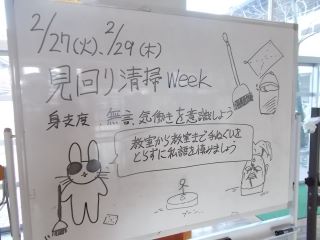 2/27(火)、2/29(木)
見回り清掃 Week
身支度 無言、気働きを意識しよう
教室から教室まで手ぬぐいを
とらずに私語を慎みましょう